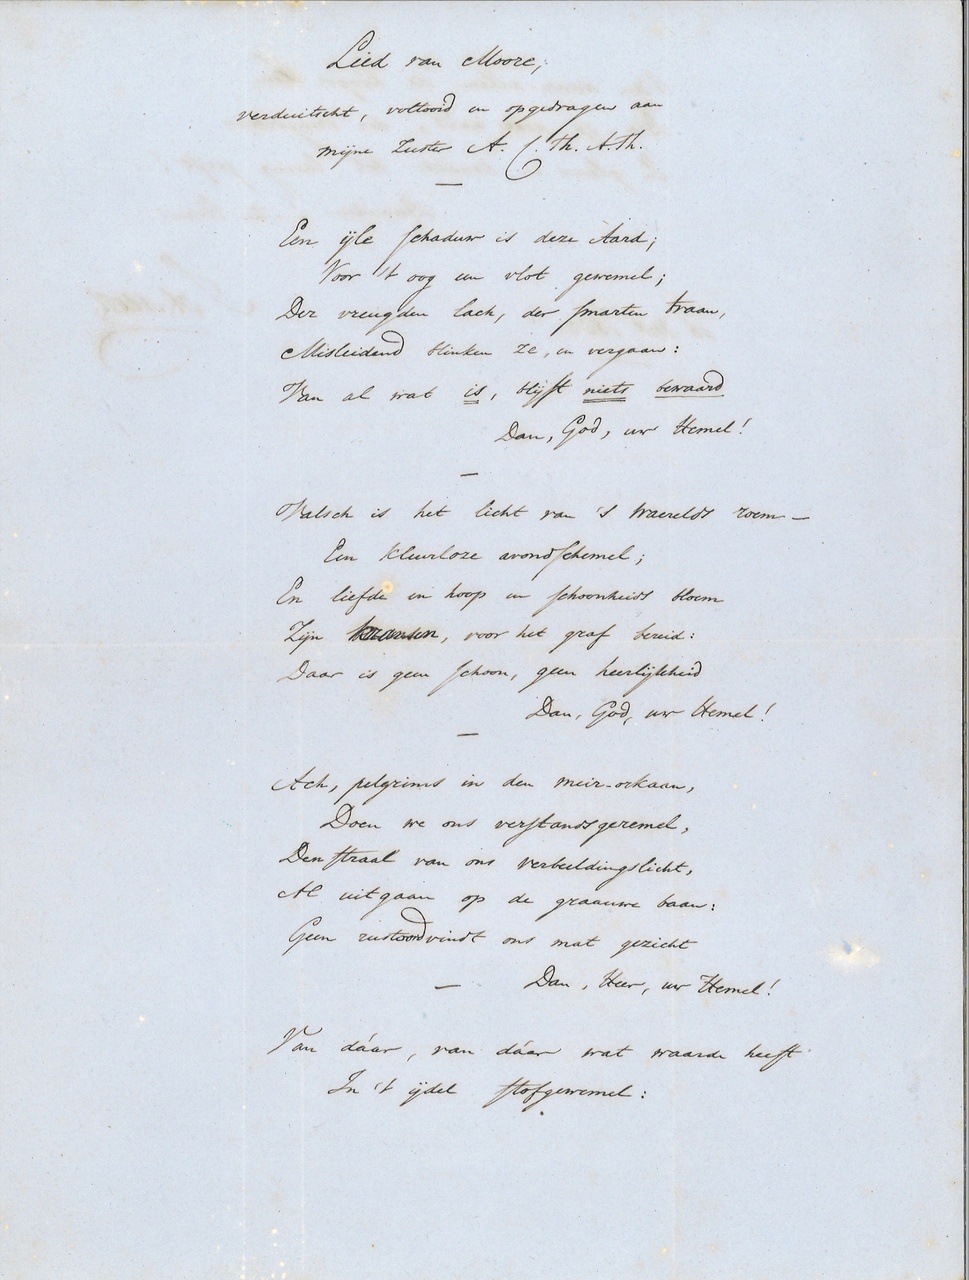 Lied van Moore,
verduitscht, voltooid en opgedragen aan
mijne Zuster A. C. Th. A. Th.
—
Een ijle schaduw is deze Aard;
Voor 't oog een vlot gewemel;
Der vreugden lach, der smarten traan,
Misleidend blinken ze, en vergaan:
Van al wat is, blijft niets bewaard
Dan, God, uw Hemel!
—
Valsch is het licht van 's waerelds roem —
Een kleurloze avondschemel;
En liefde en hoop en schoonheids bloem
Zijn kransen, voor het graf bereid:
Daar is geen schoon, geen heerlijkheid
Dan, God, uw Hemel!
—
Ach, pelgrims in den meir-orkaan,
Doen we ons verstandsgeremel,
Den straal van ons verbeeldingslicht,
Al uitgaan op de graauwe baan:
Geen rustoord vindt ons mat gezicht
— Dan, Heer, uw Hemel!
Van dáar, van dáar wat waarde heeft
In 't ijdel stofgewemel: